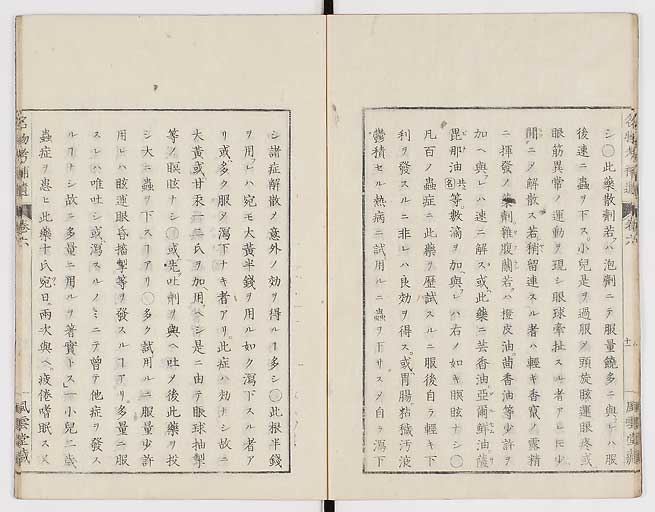 シ〇此藥散劑若バ泡劑ニテ服量饒多ニ與レハ服
後速ニ蟲ヲ下ス。小兒是ヲ過服メ頭旋眩運眼疼或
眼筋異常ノ運動ヲ現シ眼球牽扯スル者アレㄷ少
間ニメ解散ス若稍留連スル者ハ輕キ香竄ノ露精
ニ揮發ノ藥劑雜腹蘭若ハ橙皮油茴香油等少許ヲ
加ヘ與レハ速ニ解ス或此藥ニ芸香油亞爾鮮油薩
毘那油 等數滴ヲ加ヘ與レハ右ノ如キ瞑眩ナシ〇
凡百ノ蟲症ニ此藥ヲ歷試スルニ服後自ラ輕キ下
利ヲ發スルニ非レハ良効ヲ得ス。或胃腸粘穢汚液
鬱積セル熱病ニ試用ルニ蟲ヲ下サスメ自ラ瀉下
シ諸症解散メ意外ノ効ヲ得ルㄱ多シ〇此根半錢
ヲ用レハ宛モ大黃半錢ヲ用ル如ク瀉下スル者ア
リ或多ク服メ瀉下ナキ者アリ。此症ハ効ナシ故ニ
大黃或甘汞一二氏ヲ加用ヘシ是ニ由テ眼球抽掣
等ノ瞑眩ナシ〇或先吐劑ヲ與ヘ吐メ後此藥ヲ投
シ大ニ蟲ヲ下スㄱアリ〇多ク試用ルニ服量少許
用レハ眩運眼昏搐掣等ヲ發スルㄱアリ多量ニ服
スレハ唯吐シ或瀉スルノミニテ曾テ他症ヲ發ス
ルㄱナシ故ニ多量ニ用ルヲ菁實トス一小兒二歲
蟲症ヲ患ヒ此藥十氏宛日ニ兩次與ヘ疲倦嗜眠ス又
卷六